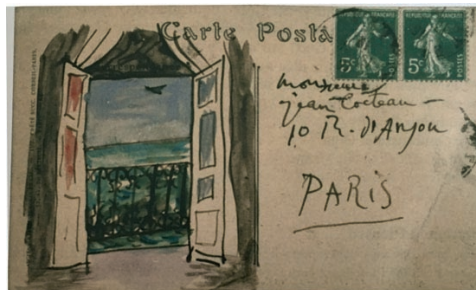 Carte Posta
5c
5c
POSTES
Monsieur
Jean Cocteau
10 R. d'Anjou
PARIS